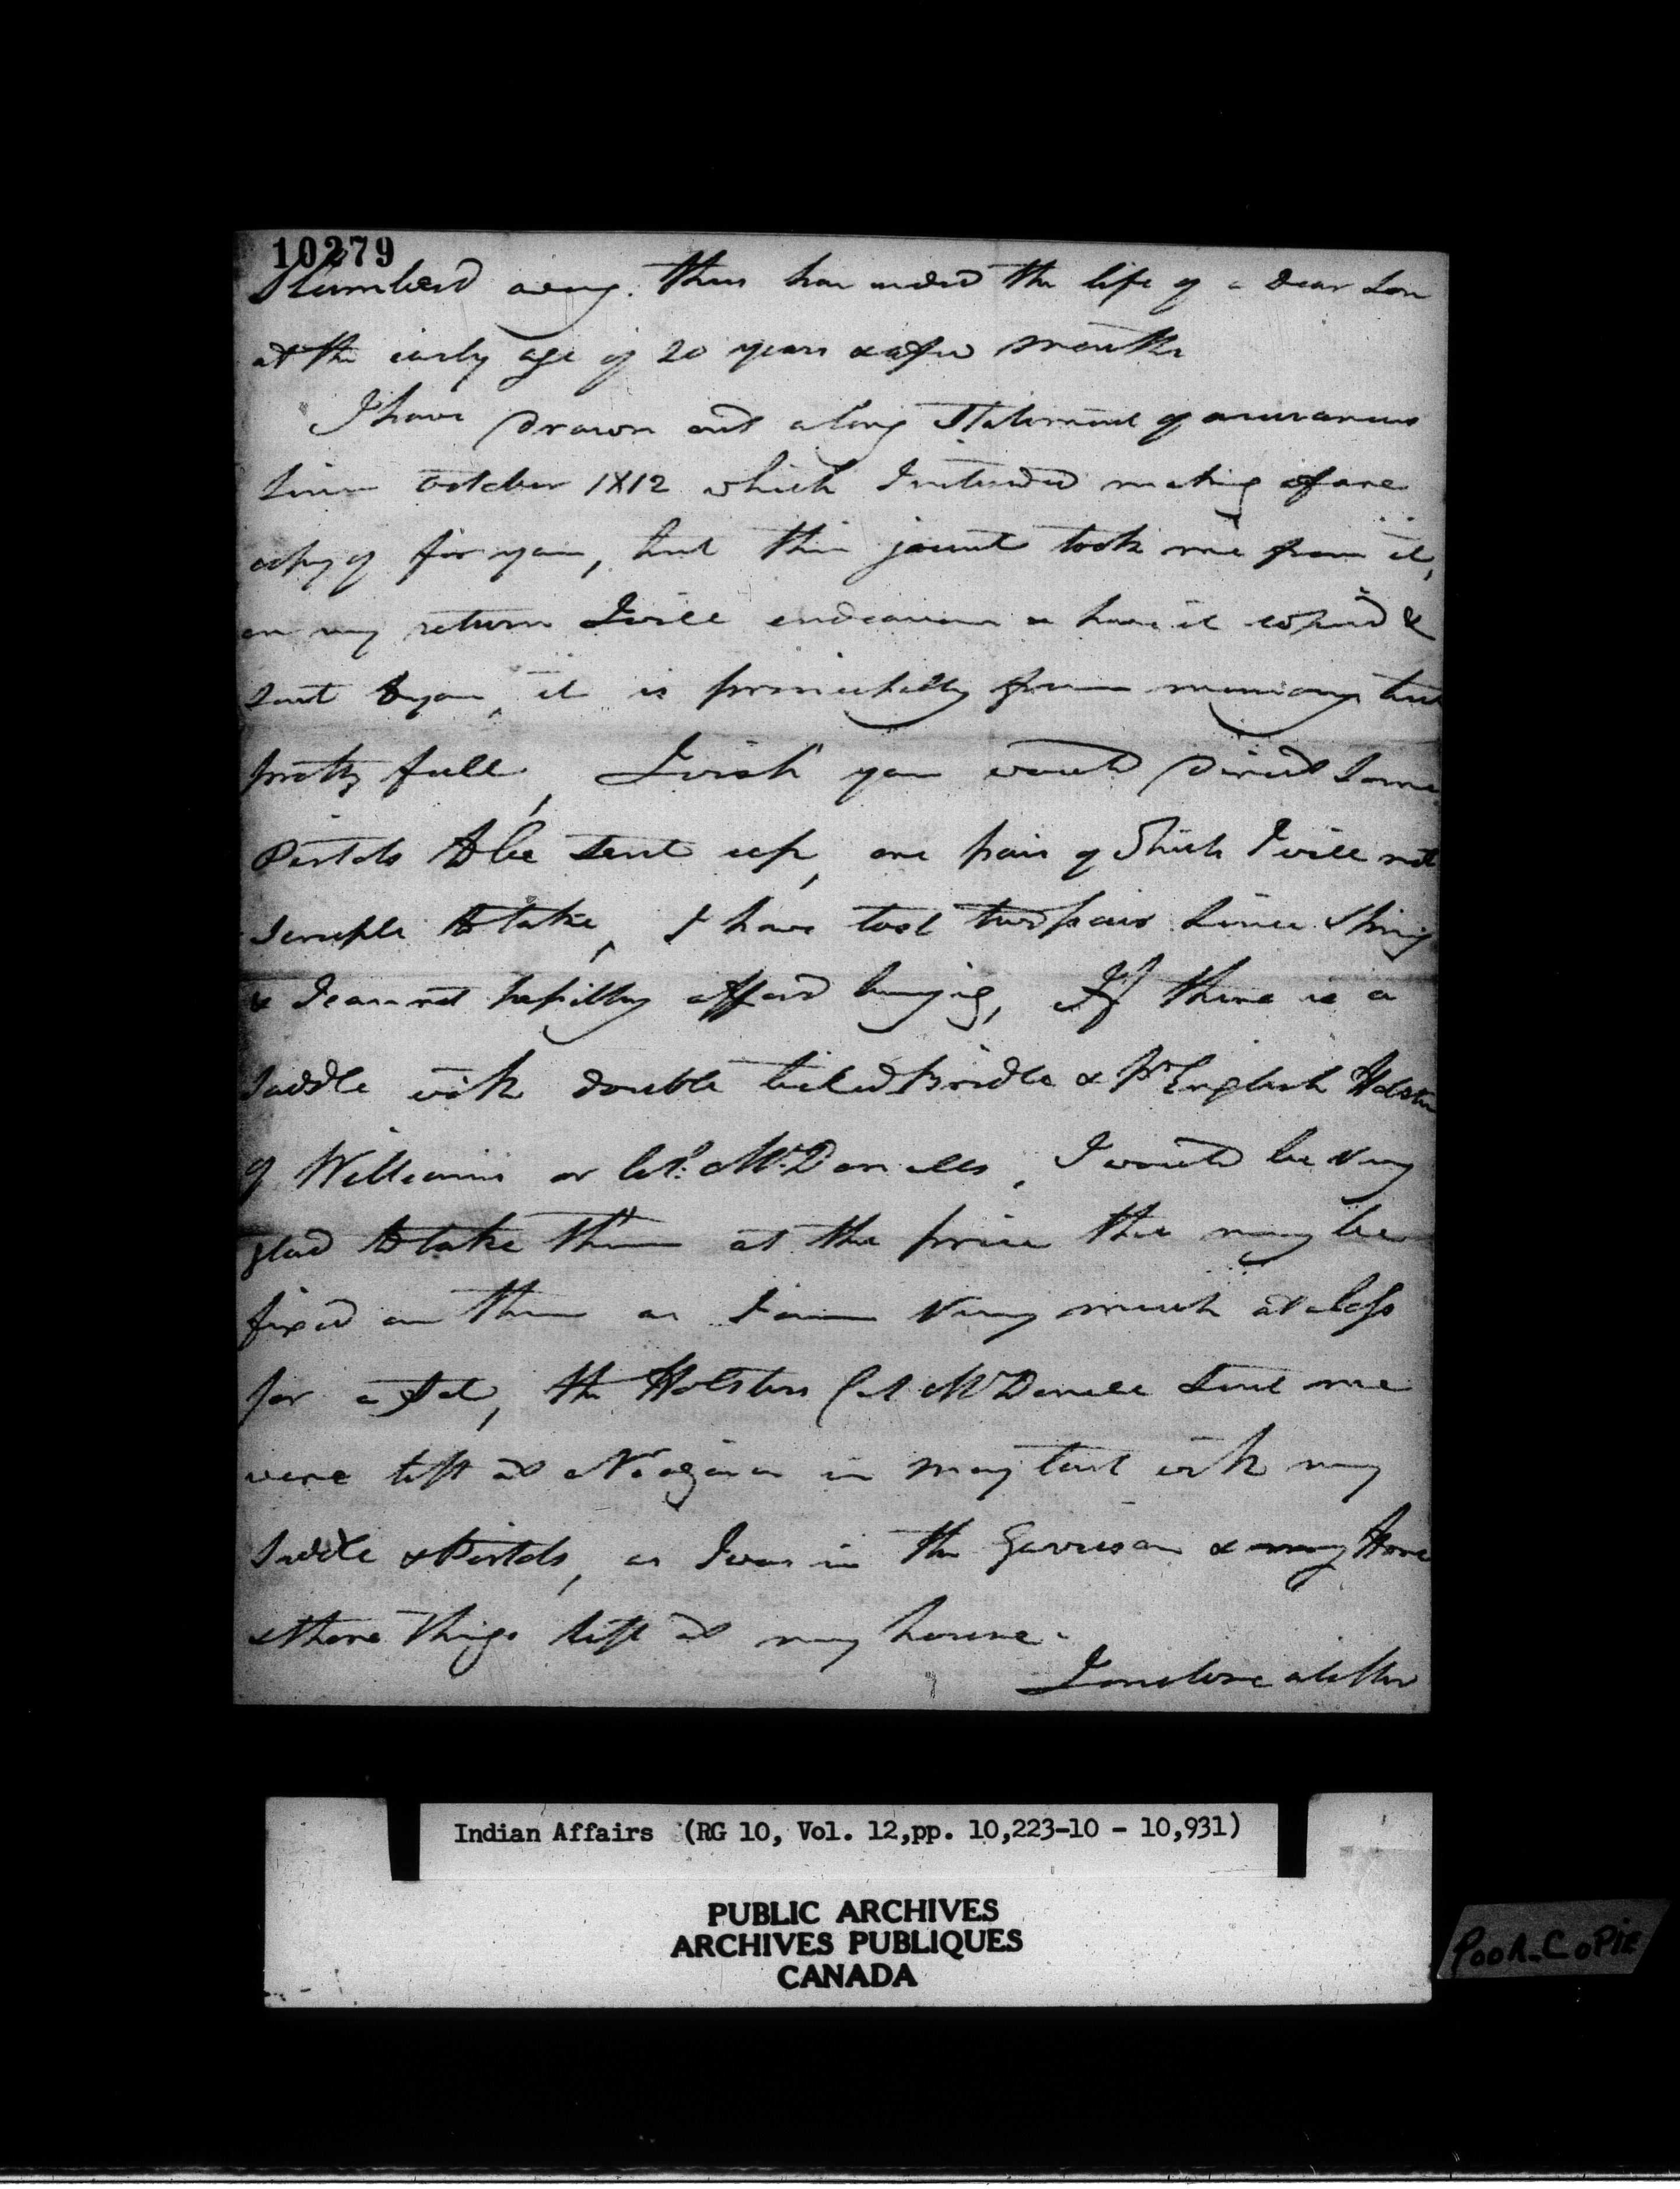 10279
Slumberd away. thus has ended the life of a dear Son
at the early age of 20 years & a few months
I have drawn out a long Statement of occurances
Since October 1812 which I intended making a fare
copy of for you, but this jaunt took me from it,
on my return I will endeavour to have it copied &
Sent to you, it is principally from memory but
pretty full, I wish you would direct Some
Pistols to be sent up, one pair of which I will not
Scruple to take, I have lost two pair Since Spring
& I cannot afford buying, If there is a
Saddle with double Bridle & pr English Holsters
of Williams or Col. McDonells, I would be very
glad to take them at the price the may be
fixed on them as I am very much at a loss
for a Set, the Holsters Col McDonell Sent me
were left at Niagara in may last with my
Saddle & Pistols, as I was in the Garrison & my Horse
& those things left at my house.
I enclose a letter
Indian Affairs (RG 10, Vol. 12,pp. 10,223-10 - 10,931)
PUBLIC ARCHIVES
ARCHIVES PUBLIQUES
CANADA
POOR-COPIE